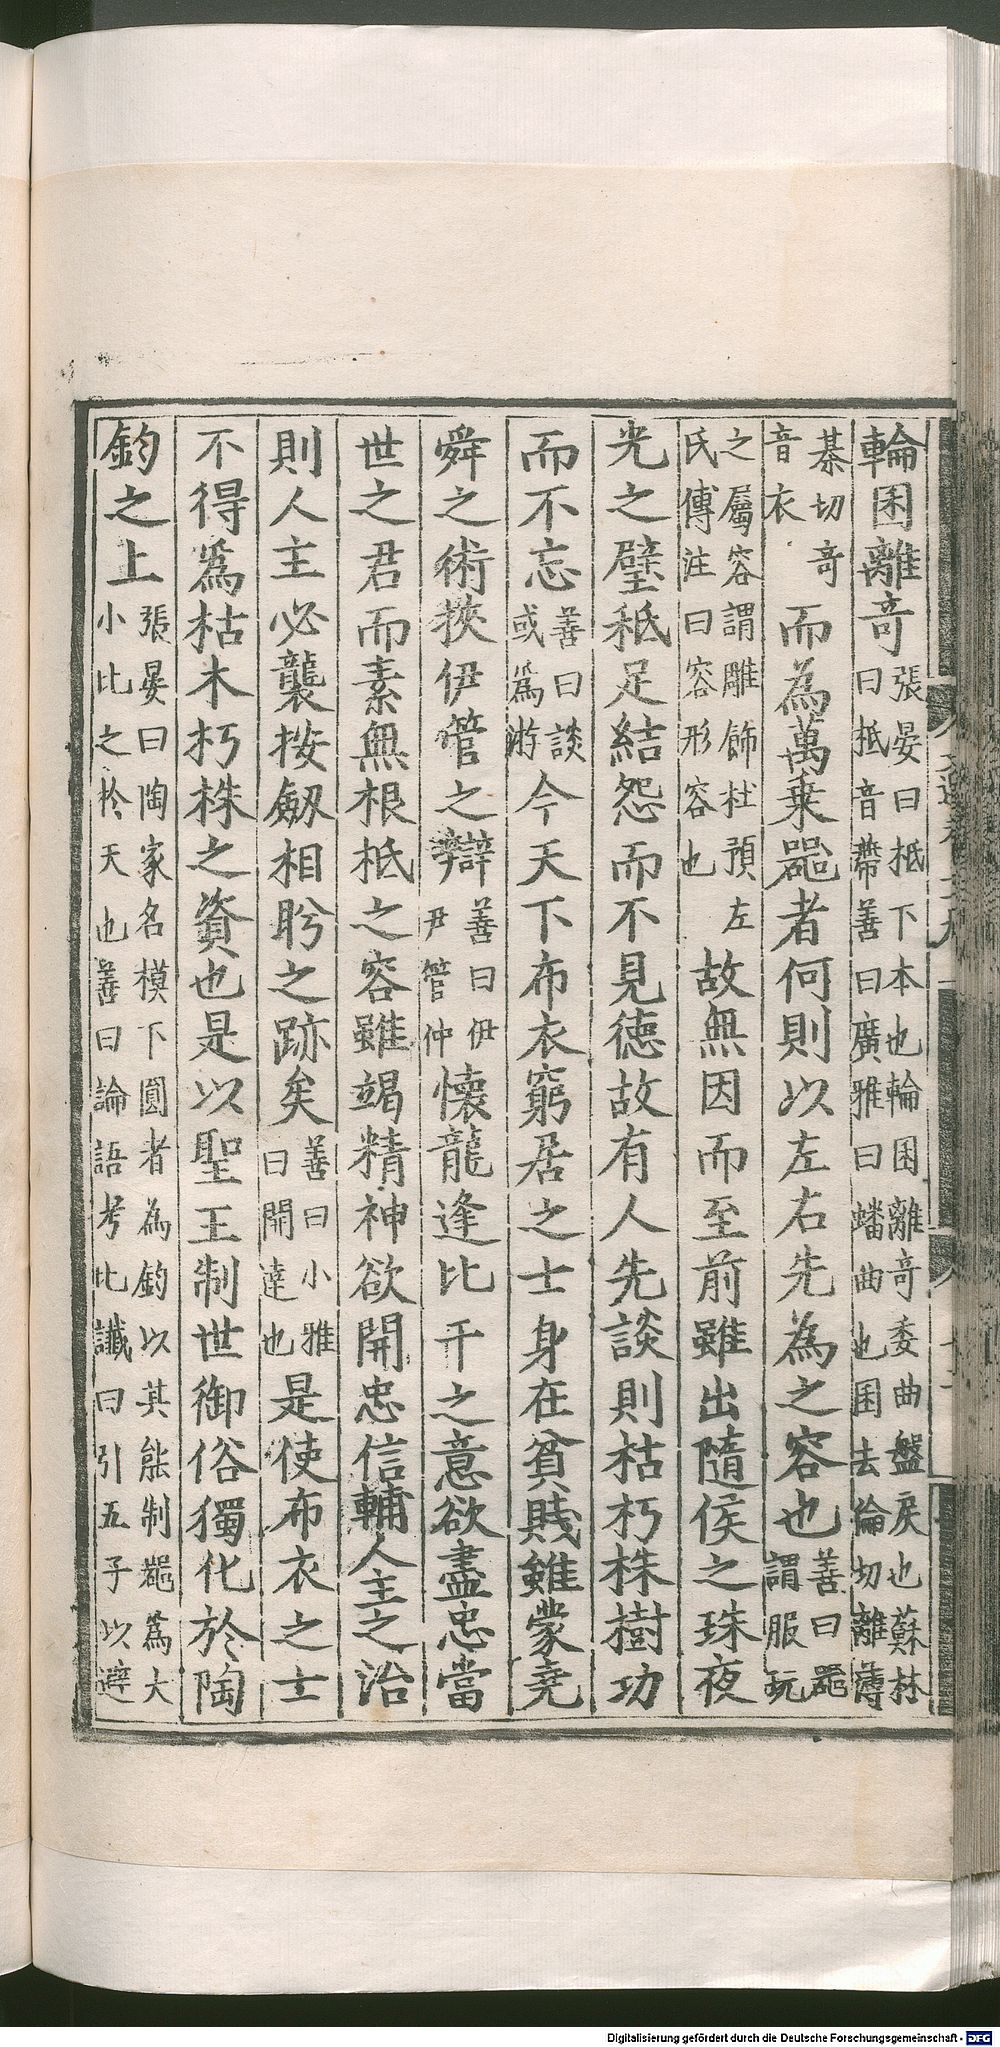 輪囷離奇張晏曰抵下本也輪囷離奇委曲盤戾也蘇林曰抵音蔕善曰廣雅曰蟠曲也囷去倫切離薄
綦切奇音衣而為萬乗噐者何則以左右先為之容也善曰噐謂服玩
之屬容謂雕飾杜預左氏傳注曰容形容也故無因而至前雖出隨侯之珠夜
光之璧秪足結怨而不見德故有人先談則枯朽株樹功
而不忘善曰談或爲游今天下布衣窮居之士身在貧賤雖蒙堯
舜之術挾伊管之辯善曰伊尹管仲懷龍逢比干之意欲盡忠當
世之君而素無根柢之容雖竭精神欲開忠信輔人主之治
則人主必襲按劒相眄之跡矣善曰小雅曰開達也是使布衣之士
不得爲枯木朽株之資也是以聖王制世御俗獨化於陶
鈞之上張晏曰陶家名模下圓者為鈞以其能制噐爲大小比之於天也善曰論語考比讖曰引五子以避
Digitalisierung gefördert durch die Deutsche Forschungsgemeinschaft - DFG